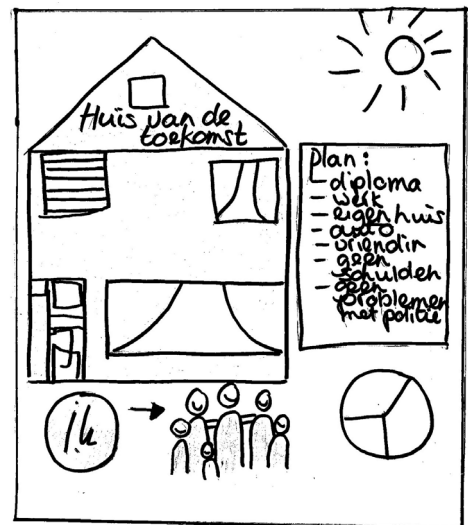 Huis van de
toekomst
plan:
- diploma
- werk
- eigen huis
- auto
- vriendin
- geen
schulden
- geen
problemen
met politie
ik